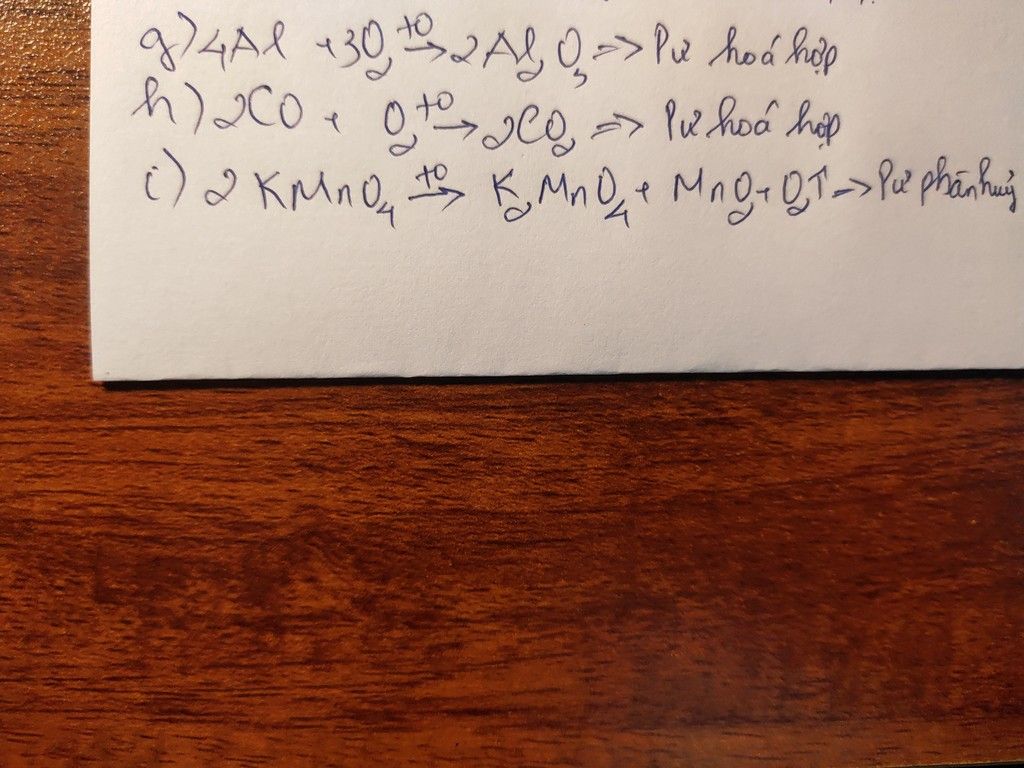 g) 4Al + 3O₂ →(t⁰) 2Al₂O₃ => Pư hoá hợp
h) 2CO + O₂ →(t⁰) 2CO₂ => Pư hoá hợp
i) 2KMnO₄ →(t⁰) K₂MnO₄ + MnO₂ + O₂↑ => Pư phân huỷ